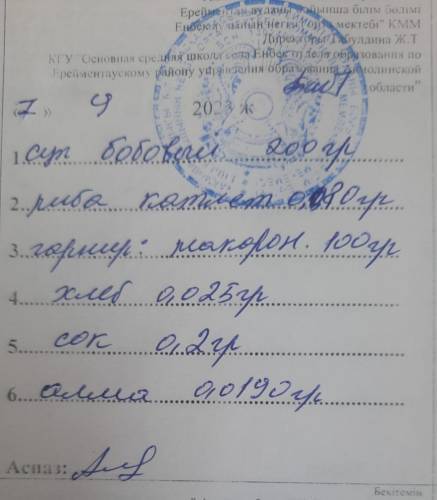 Ерейментау ауданы бойынша білім бөлімі
Еңбек ауылының негізгі орта мектебі" КММ
Директоры Габулдина Ж.Т
КГУ "Основная средняя школа села Еңбек отдела образования по
Ерейментаускому району управления образования Акмолинской
области"
«7» 9 2023 ж
1. суп бобовый 200гр
2. рыба котлет 0,080гр
3. гарнир: макарон. 100гр
4. хлеб 0,025гр
5. сок 0,2гр
6. алма 0,0190гр
Аспаз:
Бекітемін